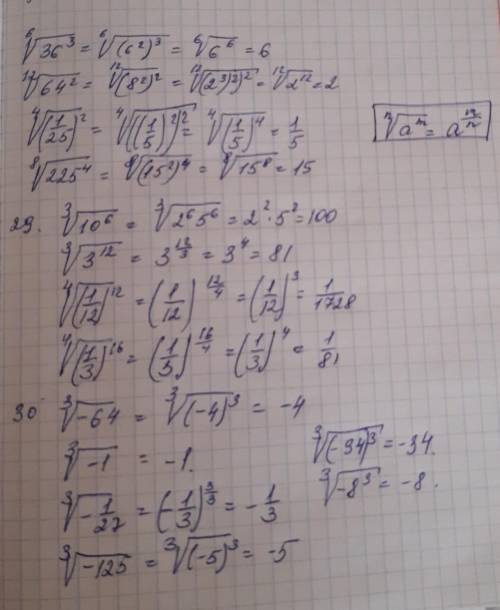 ⁶√36³ = ⁶√(6²)³ = ⁶√6⁶ = 6
¹²√64² = ¹²√(8²)² = ¹²√((2³)²)² = ¹²√2¹² = 2
⁴√(1/25)² = ⁴√((1/5)²)² = ⁴√(1/5)⁴ = 1/5
ⁿ√aᵐ = a^(m/n)
⁸√225⁴ = ⁸√(15²)⁴ = ⁸√15⁸ = 15
29. ³√10⁶ = ³√2⁶5⁶ = 2²·5² = 100
³√3¹² = 3^(12/3) = 3⁴ = 81
⁴√(1/12)¹² = (1/12)^(12/4) = (1/12)³ = 1/1728
⁴√(1/3)¹⁶ = (1/3)^(16/4) = (1/3)⁴ = 1/81
30 ³√-64 = ³√(-4)³ = -4
³√(-34)³ = -34.
³√-1 = -1.
³√-8³ = -8.
³√-1/27 = (-1/3)^(3/3) = -1/3
³√-125 = ³√(-5)³ = -5